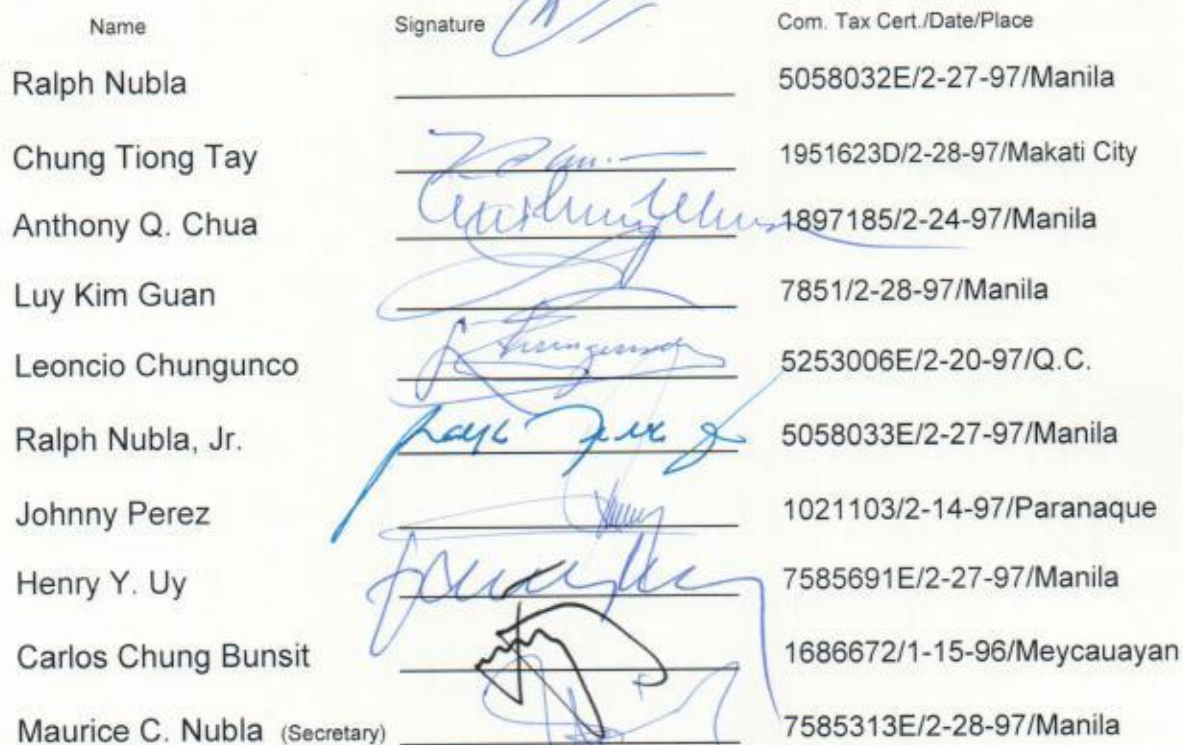 Name Signature Com. Tax Cert./Date/Place
Ralph Nubla 5058032E/2-27-97/Manila
Chung Tiong Tay 1951623D/2-28-97/Makati City
Anthony Q. Chua 1897185/2-24-97/Manila
Luy Kim Guan 7851/2-28-97/Manila
Leoncio Chungunco 5253006E/2-20-97/Q.C.
Ralph Nubla, Jr. 5058033E/2-27-97/Manila
Johnny Perez 1021103/2-14-97/Paranaque
Henry Y. Uy 7585691E/2-27-97/Manila
Carlos Chung Bunsit 1686672/1-15-96/Meycauayan
Maurice C. Nubla (Secretary) 7585313E/2-28-97/Manila